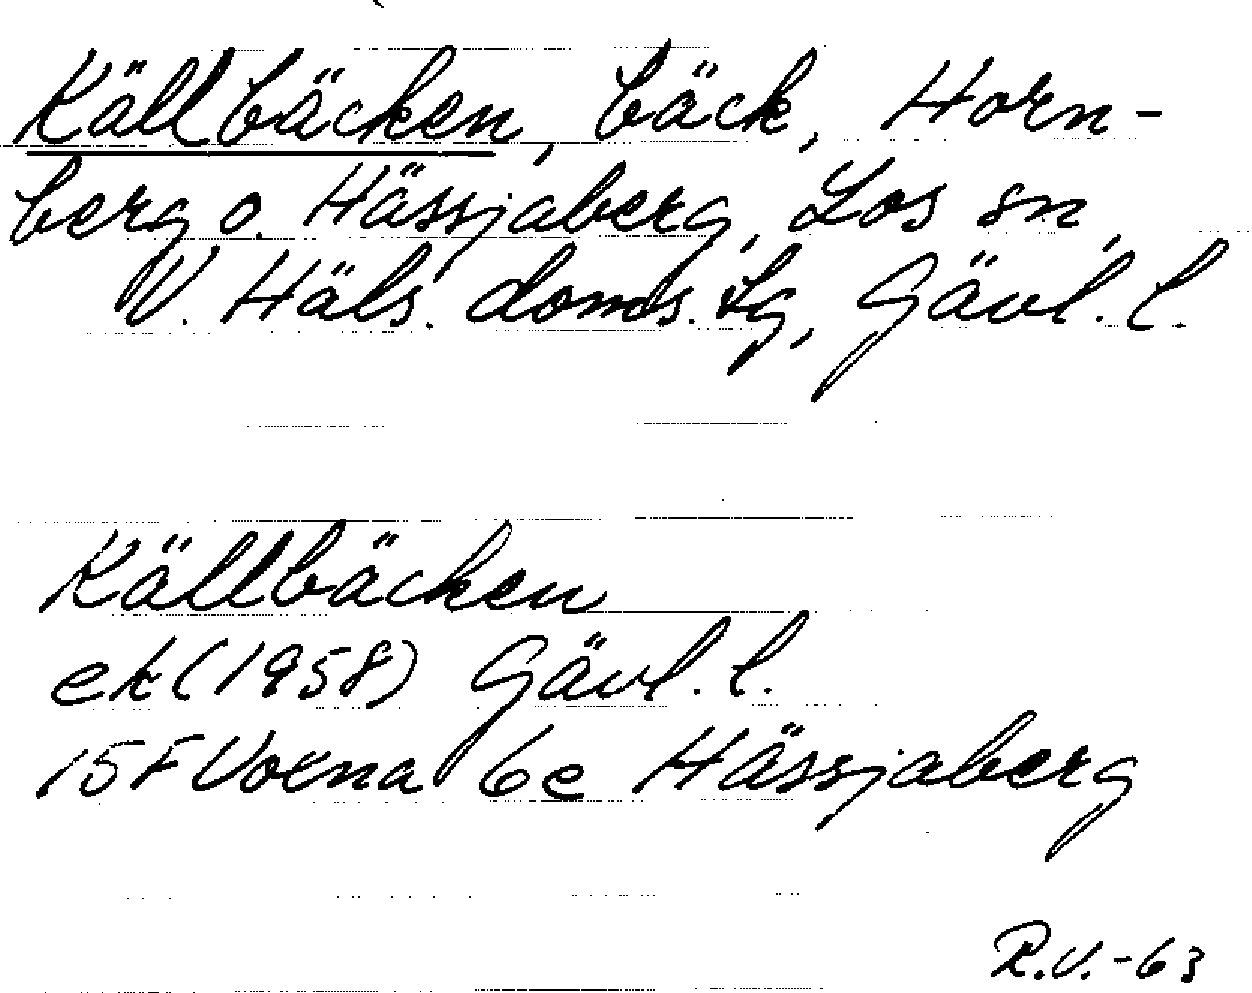 Källbäcken, bäck, Horn-
berg o. Hässjaberg, Los sn,
V. Häls. doms. lg, Gävl. l.
Källbäcken
ek (1958) Gävl. l.
15F Voxna 6e Hässjaberg
R.V.-63